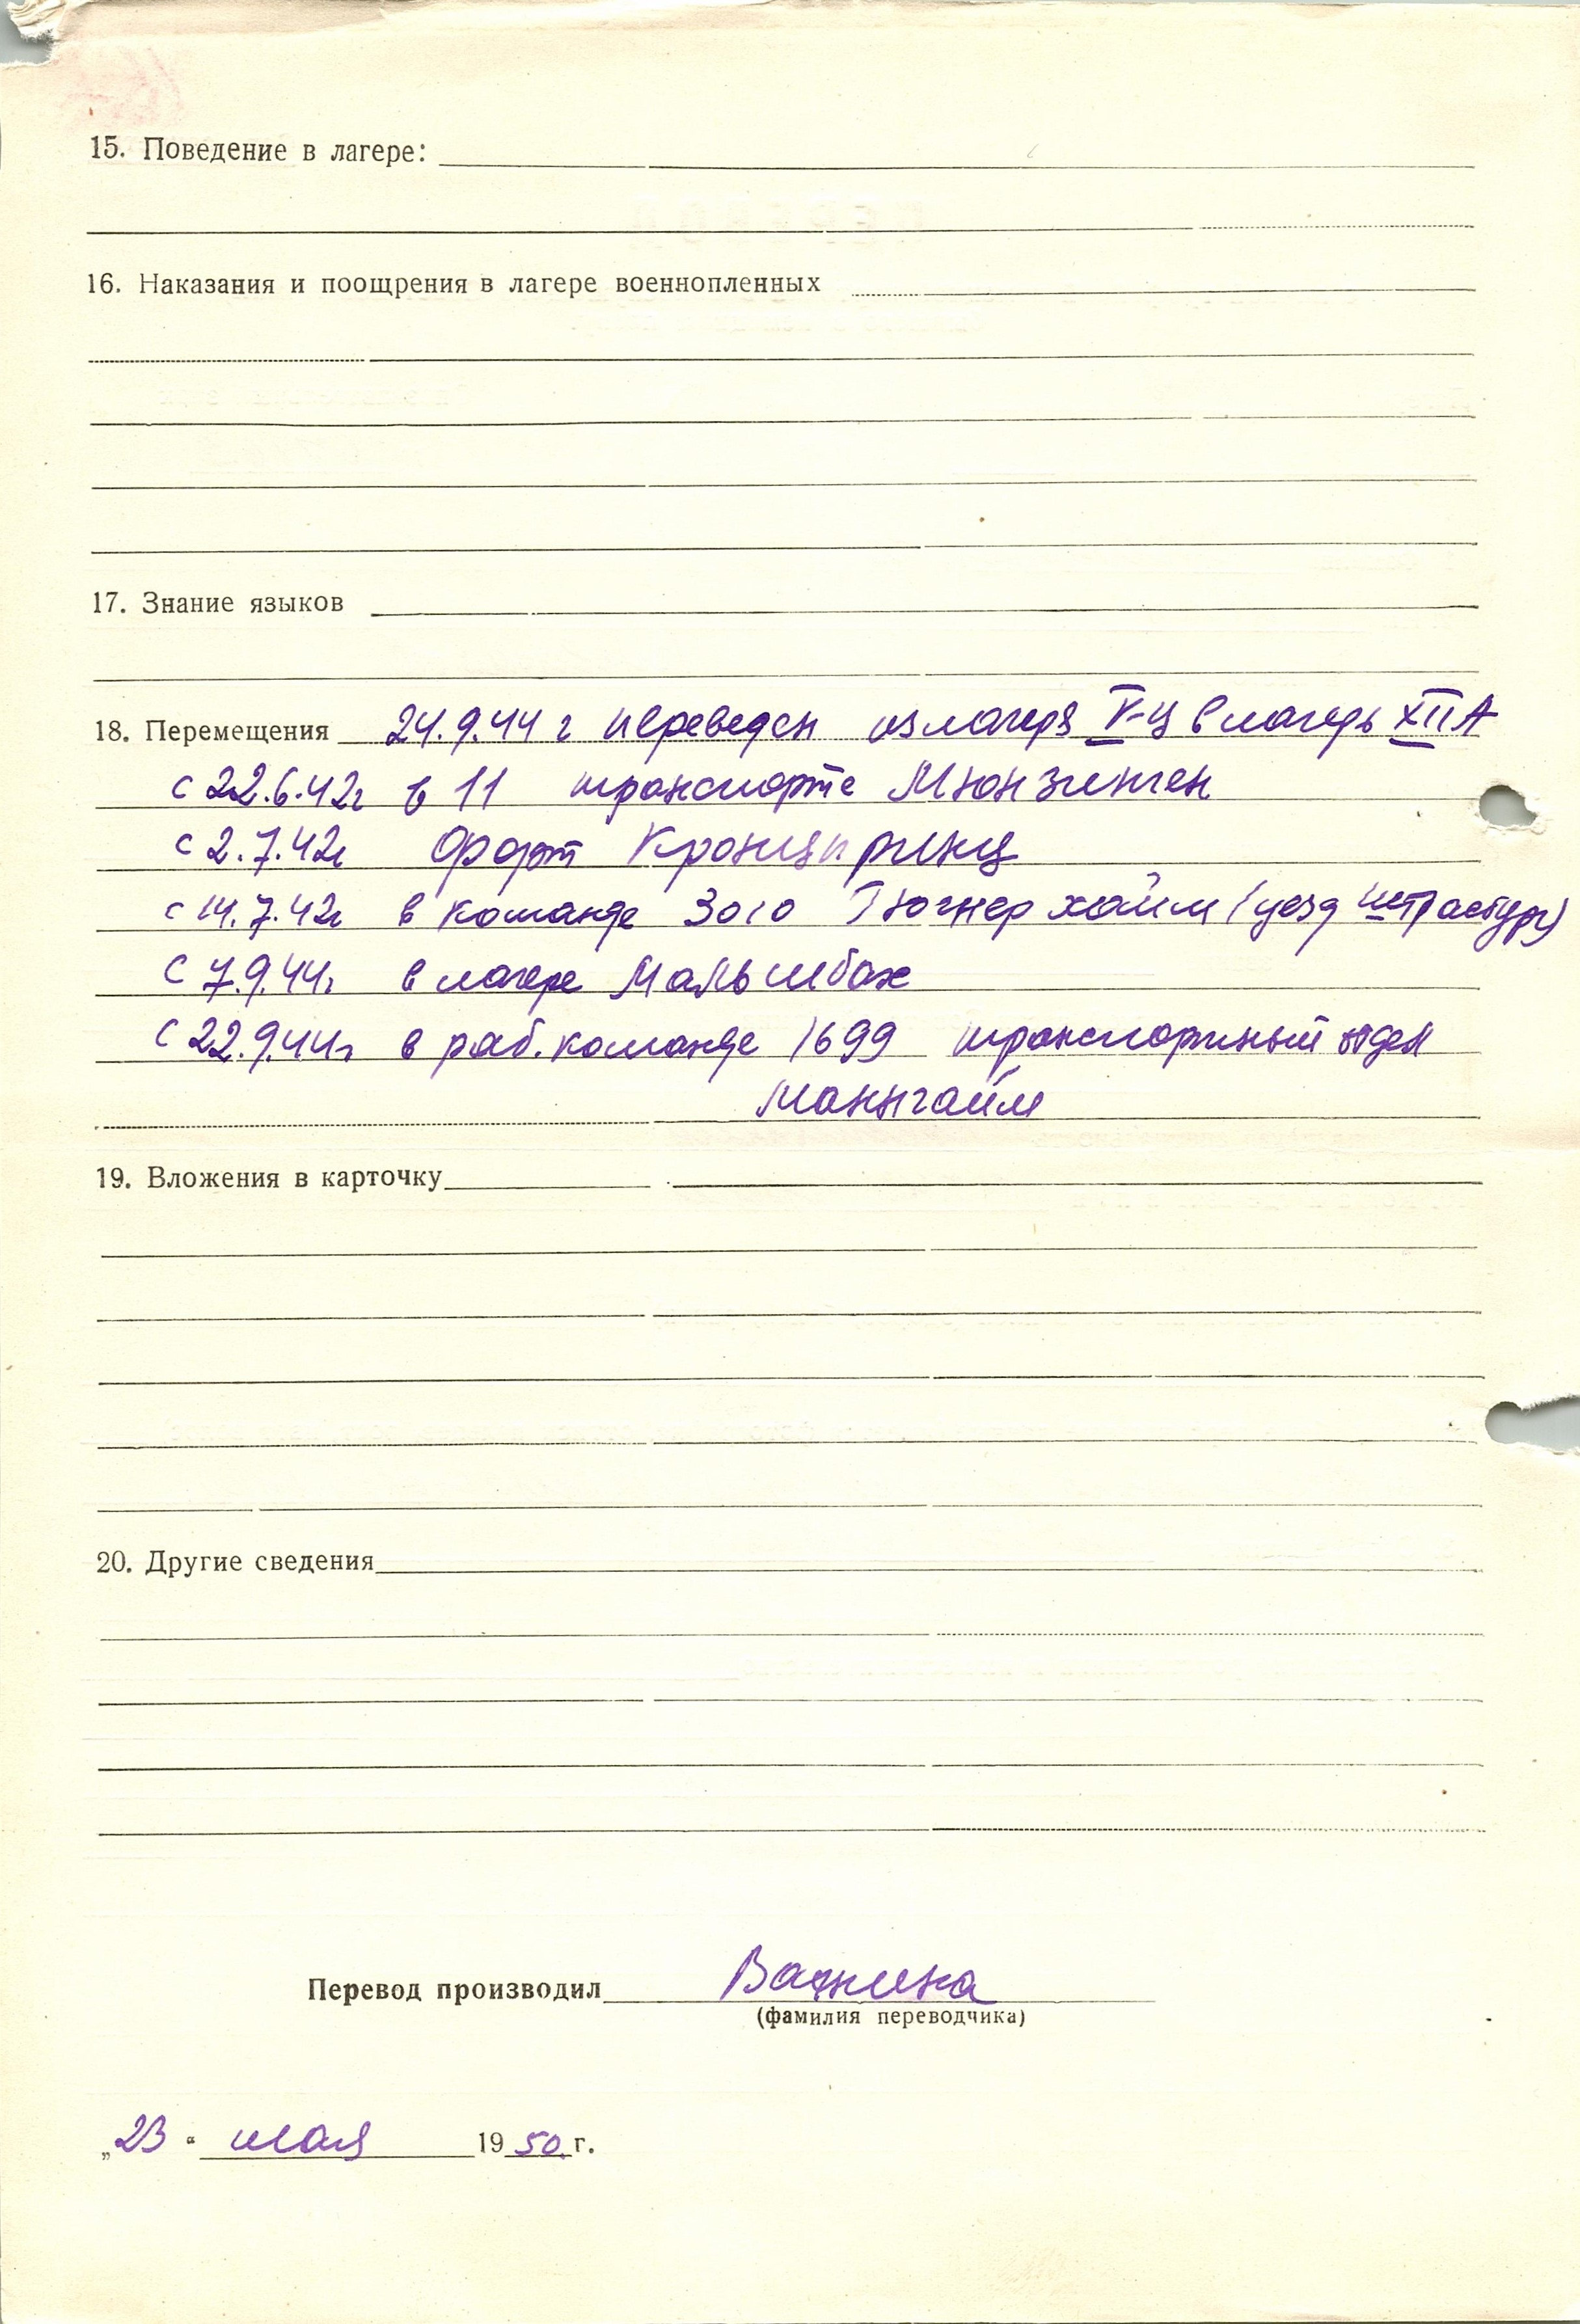 15. Поведение в лагере:
16. Наказания и поощрения в лагере военнопленных
17. Знание языков
18. Перемещения 24.9.44 г переведен из лагеря V-Ц в лагерь XII А
с 22.6.42г в 11 транспорте Мюнзинген
с 2.7.42г Форт Кронцпринц
с 14.7.42г в команде 3010 Тюгнерхайм (уезд Штрасбург)
с 7.9.44г. в лагере Мальшбах
с 22.9.44г в раб. команде 1699 транспортный отдел
Маннгайм
19. Вложения в карточку
20. Другие сведения
Перевод производил
(фамилия переводчика)
„23" мая 1950 г.